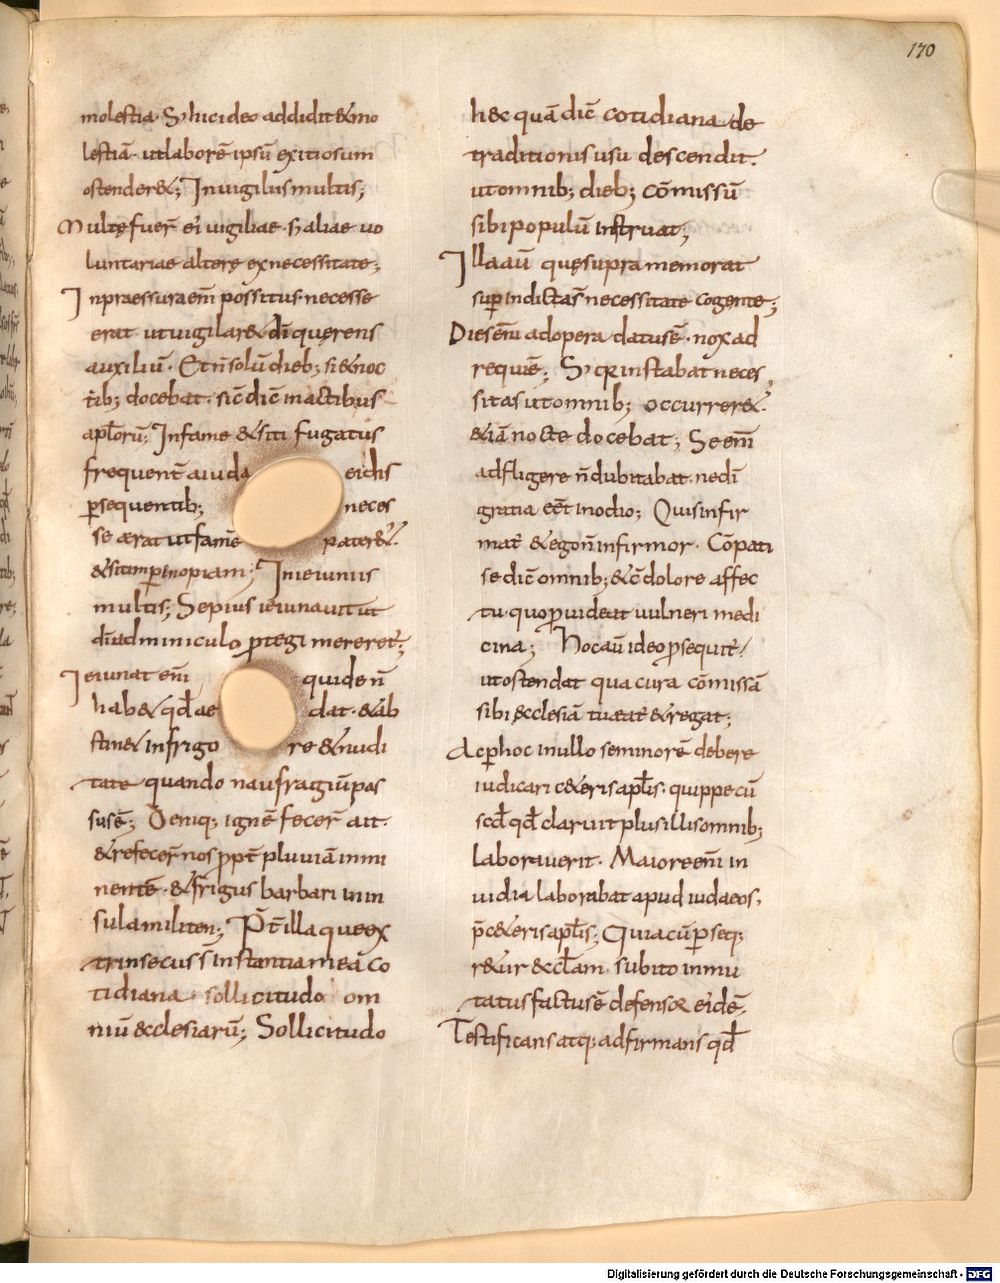 170
molestia. S; hic ideo addidit & mo
lestiā. ut laborē ipsū exitiosum
ostender&; In uigiliis multis;
Multę fuer̄ ei uigiliae. & aliae uo
luntariae alterę ex necessitate;
In praessura em̄ possitus. necesse
erat ut uigilar& dī quęrens
auxiliū. Et ñ solū dieb; si & noc
tib; docebat. sic̄ dic̄ in actibus
apl̄orū; In fame & siti fugatus
frequent̄ a iuda eidis
ꝑsequentib; neces
se aerat ut famē pater&.
& sitim ꝑ inopiam; In ieiuniis
multis; Sepius ieiunauit ut
dī adminiculo ꝓtegi mereret̄;
Ieiunat em̄ qui de ñ
hab& qđ ae dat. & ab
stin& in frigo re & nudi
tate quando naufragiū pas
sus ē; Deniq; ignē fecer̄ ait.
& refecer̄ nos ꝓpt̄ pluuiā inmi
nentē. & frigus barbari in in
sula militen; P̄t̄ illa que ex
trinsecus s̄ instantia meā co
tidiana. sollicitudo om
niū &cclesiarū; Sollicitudo
h&c quā dic̄ cotidiana de
traditionis usu descendit.
ut omnib; dieb; cōmissū
sibi populū instruat;
Illa aū quę supra memorat
suꝑ indictas̄ necessitate cogente;
Dies em̄ ad opera datus ē. nox ad
requiē; S; qr instabat neces
sitas ut omnib; occurrer&.
&iā nocte docebat; Se em̄
adfligere ñ dubitabat. ne dī
gratia eēt in odio; Quis infir
mat̄ & ego ñ infirmor. Cōpati
se dic̄ omnib; & c̄ dolore affec
tu. quo ꝓuideat uulneri medi
cina; Hoc aū ideo ꝓsequit̄
ut ostendat qua cura cōmissā
sibi &cclesiā tueat̄ & regat;
Ac ꝑ hoc in ullo se minorē debere
iudicari c&eris apl̄is. quippe cū
sed qđ claruit plus illis omnib;
laborauerit. Maiore em̄ in
uidia laborabat apud iudaeos.
p̄ c&eris apl̄is; Quia cū ꝑseq;
r&ur &clam. subito inmu
tatus factus ē defensor eidē.
Testificans atq; adfirmans qđ
Digitalisierung gefördert durch die Deutsche Forschungsgemeinschaft - DFG